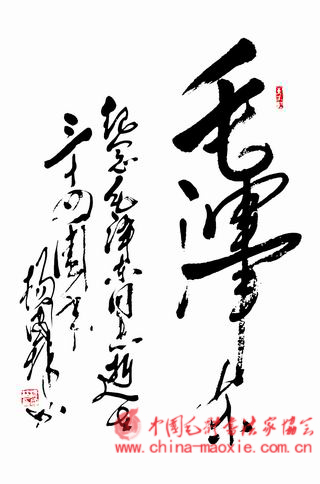 毛泽东
纪念毛泽东同志逝世
三十四周年
中国毛体书法家协会
www.china-maoxie.com.cn